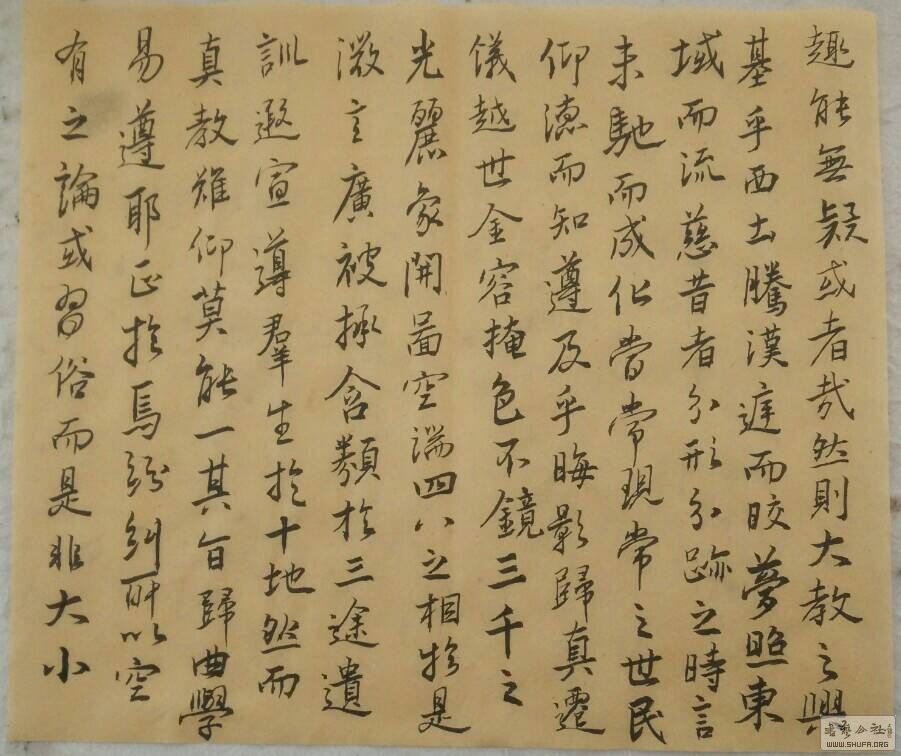 趣能無疑或者哉然則大教之興
基乎西土騰漢庭而皎夢照東
域而流慈昔者分形分跡之時言
未馳而成化當常現常之世民
仰德而知遵及乎晦影歸真遷
儀越世金容掩色不鏡三千之
光麗象開圖空端四八之相於是
微言廣被拯含類於三途遺
訓遐宣導羣生於十地然而
真教難仰莫能一其旨歸曲學
易遵耶正於焉紛糾所以空
有之論或習俗而是非大小
書藝公社
WWW.SHUFA.ORG